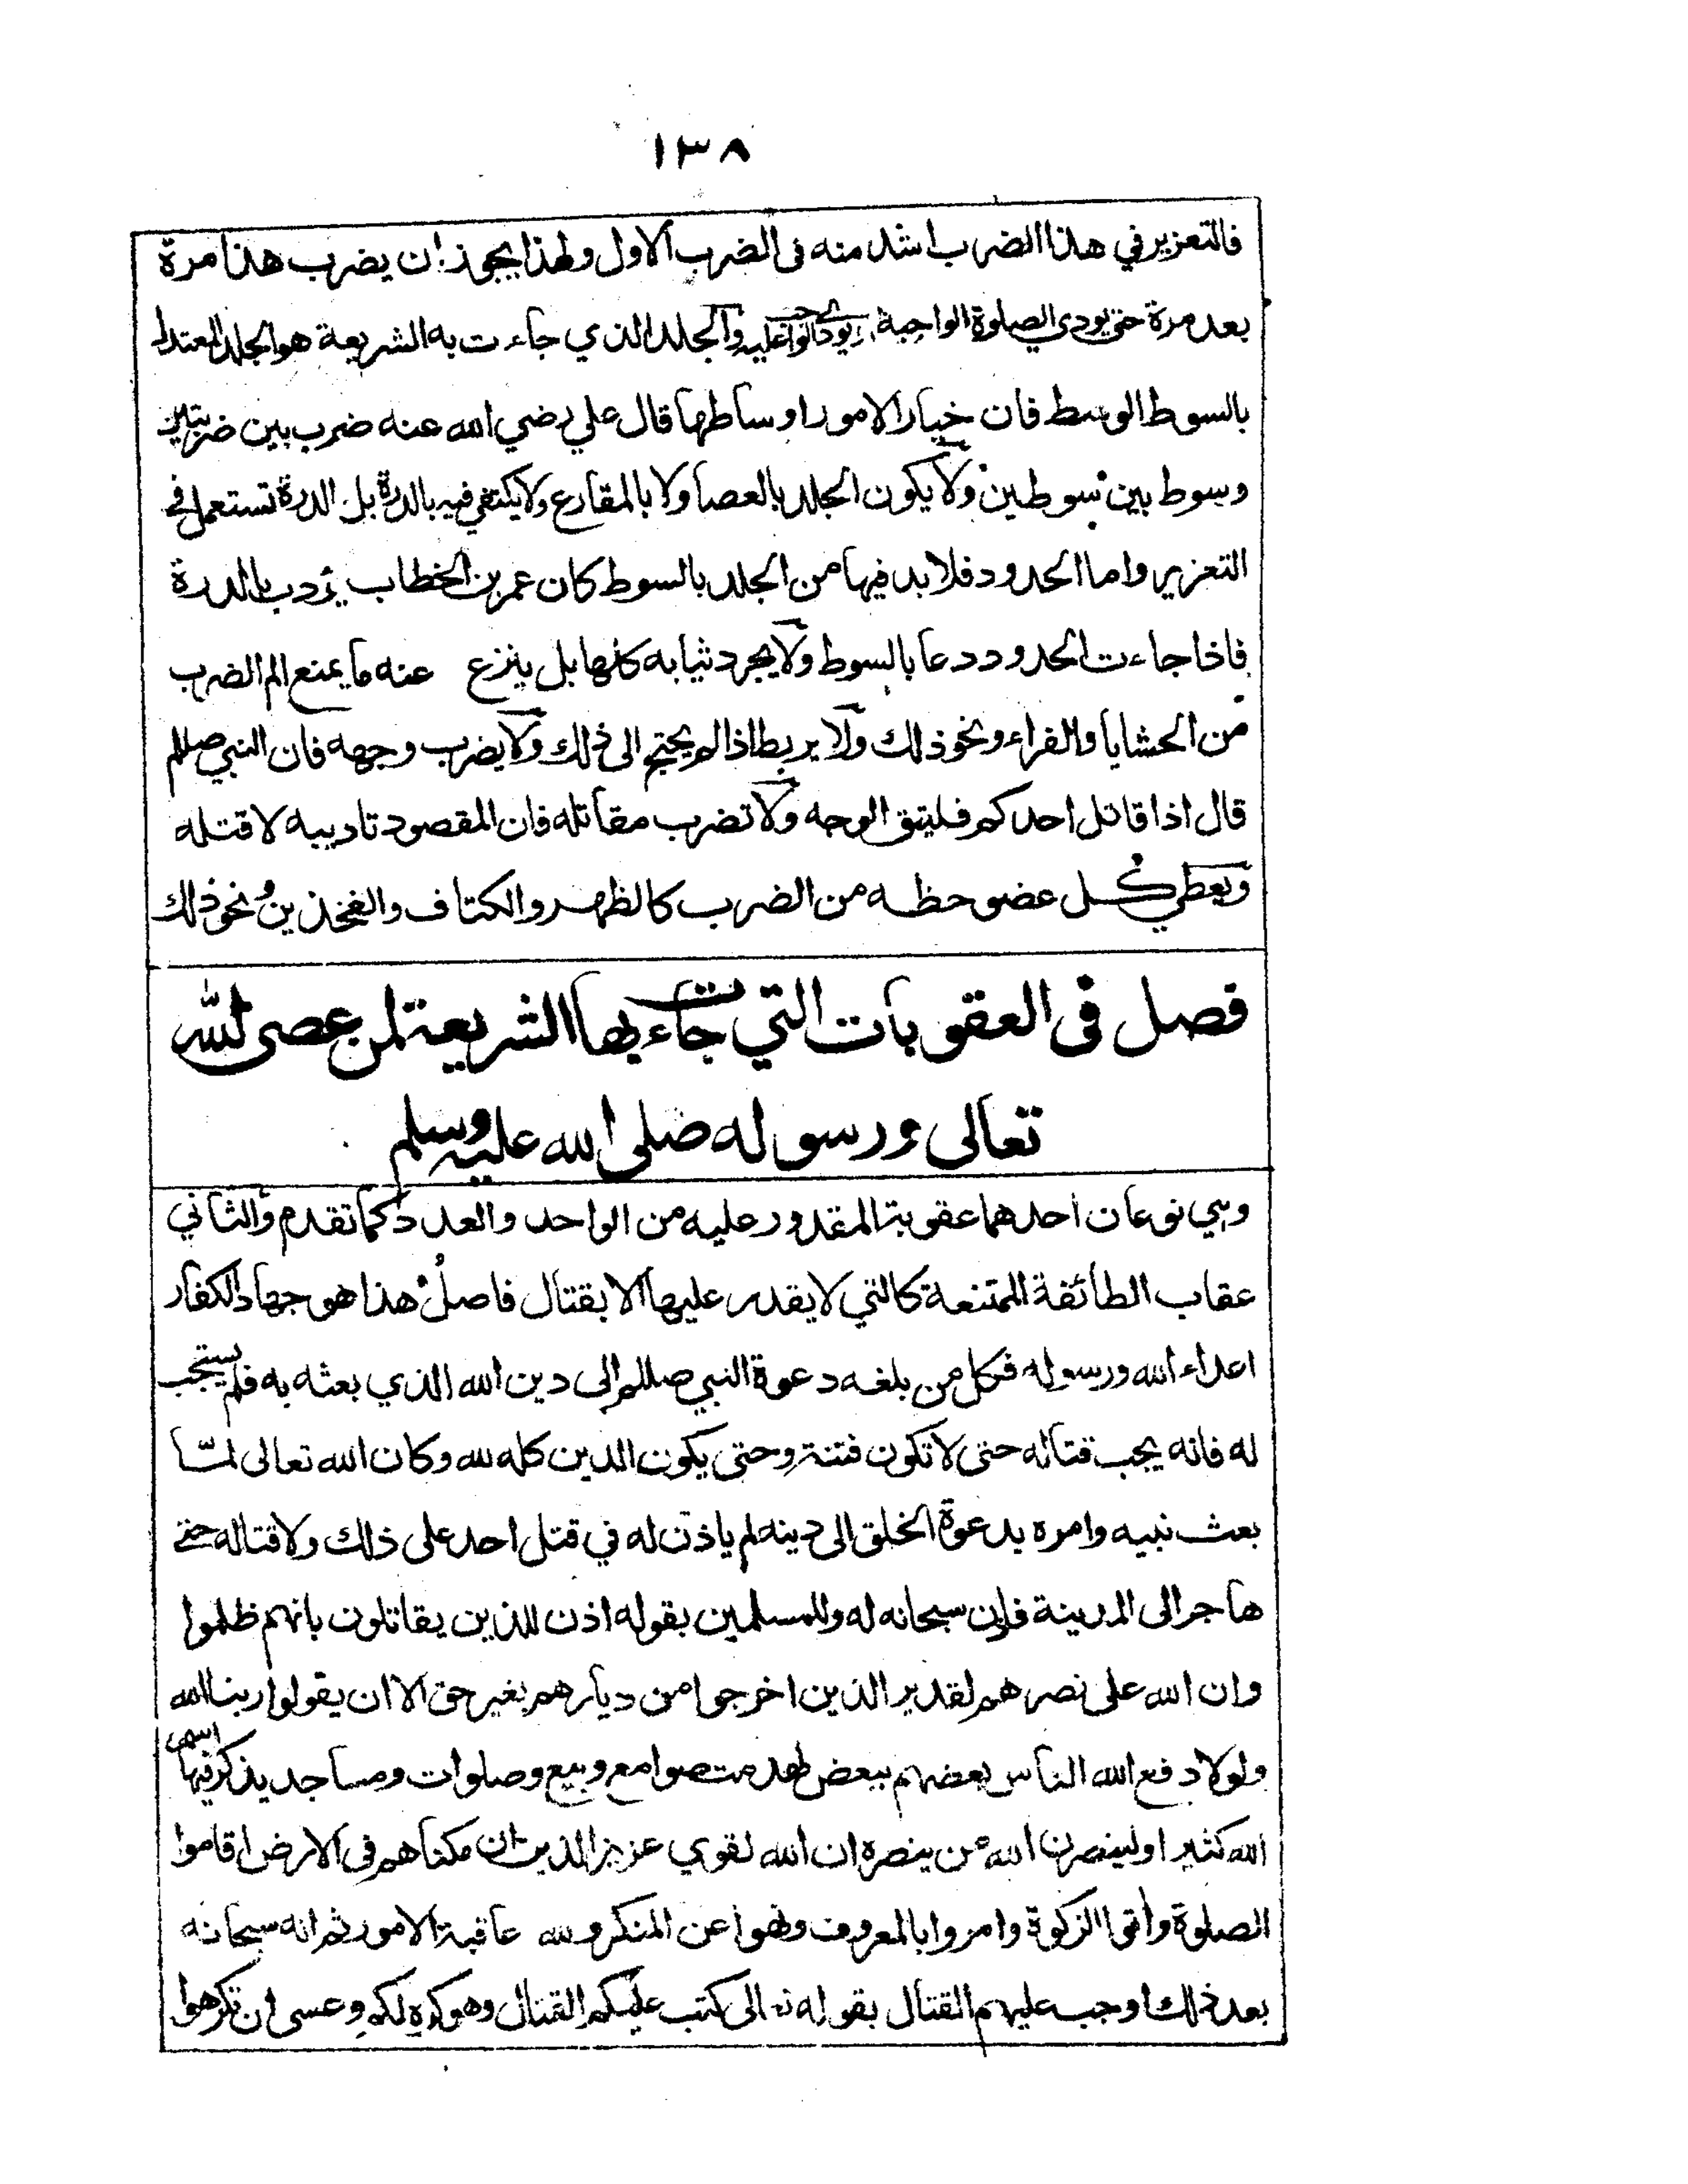 ١٣٨
فالتعزير في هذا الضرب اشد منه فى الضرب الاول ولهذا يجوز ان يضرب هذا مرة
بعد مرة حتى يودي الصلوة الواجبة او يودي الواجب عليه والجلد الذي جاءت به الشريعة هو الجلد المعتدل
بالسوط الوسط فان خيار الامور اوساطها قال علي رضي الله عنه ضرب بين ضربتين
وسوط بين سوطين ولا يكون الجلد بالعصا ولا بالمقارع ولا يكتفي فيه بالدرة بل الدرة تستعمل في
التعزير واما الحدود فلا بد فيها من الجلد بالسوط كان عمر بن الخطاب يؤدب بالدرة
فاذا جاءت الحدود دعا بالسوط ولا يجرد ثيابه كلها بل ينزع عنه ما يمنع الم الضرب
من الحشايا والفراء ونحو ذلك ولا يربط اذا لم يحتج الى ذلك ولا يضرب وجهه فان النبي صللم
قال اذا قاتل احدكم فليتق الوجه ولا تضرب مقاتله فان المقصود تاديبه لا قتله
ويعطي كل عضو حظه من الضرب كالظهر والكتاف والفخذين ونحو ذلك
فصل فى العقوبات التي جاءت بها الشريعة لمن عصى الله
تعالى ورسوله صلى الله عليه وسلم
وهي نوعان احدهما عقوبة المقدور عليه من الواحد والعدد كما تقدم والثاني
عقاب الطائفة الممتنعة كالتي لا يقدر عليها الا بقتال فاصل هذا هو جهاد الكفار
اعداء الله ورسوله فكل من بلغه دعوة النبي صللم الى دين الله الذي بعثه به فلم يستجب
له فانه يجب قتاله حتى لا تكون فتنة وحتى يكون الدين كله لله وكان الله تعالى لمّا
بعث نبيه وامره بدعوة الخلق الى دينه لم ياذن له في قتل احد على ذلك ولا قتاله حتے
هاجر الى المدينة فاذن سبحانه له وللمسلمين بقوله اذن للذين يقاتلون بانهم ظلموا
وان الله على نصرهم لقدير الذين اخرجوا من ديارهم بغير حق الا ان يقولوا ربنا الله
ولولا دفع الله الناس بعضهم ببعض لهدمت صوامع وبيع وصلوات ومساجد يذكر فيها اسم
الله كثيرا ولينصرن الله من ينصره ان الله لقوي عزيز الذين ان مكناهم فى الارض اقاموا
الصلوة واتوا الزكوة وامروا بالمعروف ونهوا عن المنكر ولله عاقبة الامور ثم انه سبحانه
بعد ذلك اوجب عليهم القتال بقوله تعالى كتب عليكم القتال وهو كره لكم وعسى ان تكرهوا